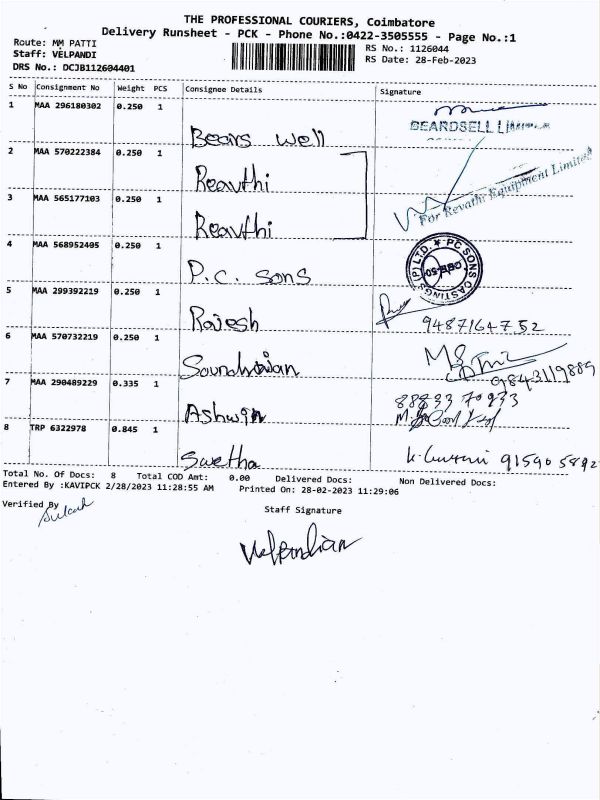 THE PROFESSIONAL COURIERS, Coimbatore
Delivery Runsheet - PCK - Phone No.:0422-3505555 - Page No.:1
Route: MM PATTI
Staff: VELPANDI
DRS No.: DCJB112604401
RS No.: 1126044
RS Date: 28-Feb-2023
S No Consignment No Weight PCS Consignee Details Signature
1 MAA 296180302 0.250 1 Bears well BEARDSELL
2 MAA 570222384 0.250 1 Reavthi
3 MAA 565177103 0.250 1 Reavthi For Revathi Equipment Limited
4 MAA 568952405 0.250 1 P.C. Sons PC SONS CASTINGS (P) LTD.
5 MAA 299392219 0.250 1 Rajesh 9487164752
6 MAA 570732219 0.250 1 9843119889
7 MAA 290489229 0.335 1 Ashwin
8 TRP 6322978 0.845 1 Swetha 91590 5892
Total No. Of Docs: 8 Total COD Amt: 0.00 Delivered Docs: Non Delivered Docs:
Entered By :KAVIPCK 2/28/2023 11:28:55 AM Printed On: 28-02-2023 11:29:06
Verified By
Staff Signature
Velpandian